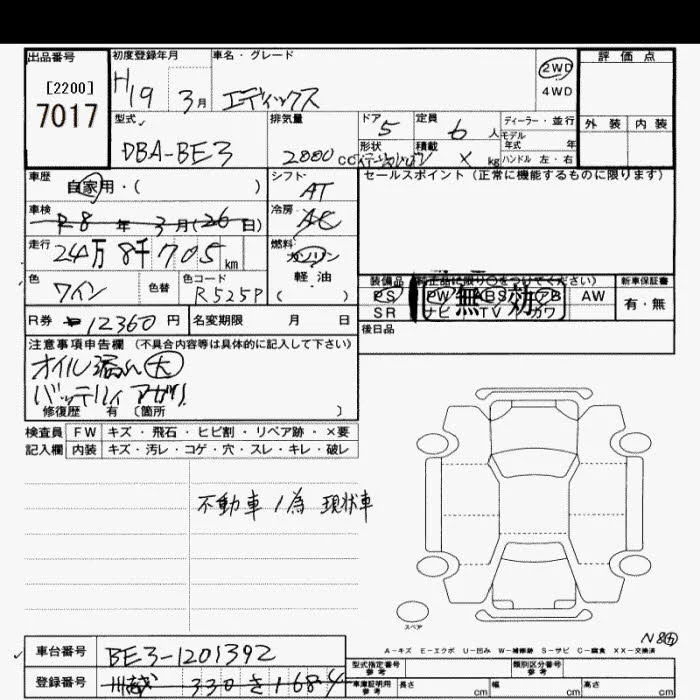 出品番号 初度登録年月 車名・グレード 評価点
[2200]
7017
H19 3月 エディックス 2WD
4WD
外装 内装
型式 排気量 ドア 定員 ディーラー・並行
DBA-BE3 2000cc 5 6人 モデル年式 年
形状 積載 ハンドル 左・右
X kg
車歴 シフト セールスポイント (正常に機能するものに限ります)
自家用・( ) AT
車検 冷房
R8年3月(26日) AC
走行 燃料
24万8千705km ガソリン
軽・油
( )
色 色替 色コード
ワイン R525P
装備品 (純正品に限り○をつけてください) 新車保証書
PS PW ABS エアB AW 有・無
SR ナビ TV カワ
無効
R券 12360円 名変期限 月 日
後日品
注意事項申告欄 (不具合内容等は具体的に記入して下さい)
オイル漏れ 大
バッテリィアガリ
修復歴 有 〔箇所 〕
検査員 FW キズ・飛石・ヒビ割・リペア跡・×要
記入欄 内装 キズ・汚レ・コゲ・穴・スレ・キレ・破レ
不動車 為 現状車
スペア
A-キズ E-エクボ U-凹み W-補修跡 S-サビ C-腐食 XX-交換済
車台番号 BE3-1201392
登録番号 川越 330 き 168
型式指定番号 参考 類別区分番号 参考
車庫証明用 参考 長さ cm 幅 cm 高さ cm